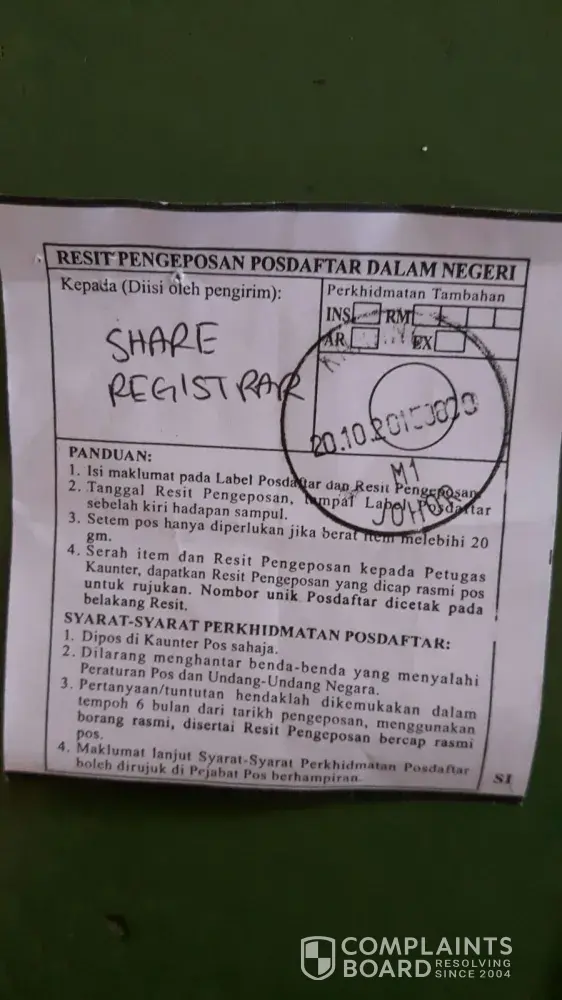 RESIT PENGEPOSAN POSDAFTAR DALAM NEGERI
Kepada (Diisi oleh pengirim):
SHARE
REGISTRAR
Perkhidmatan Tambahan
INS RM
AR EX
20.10.2015
M1
JOHOR
PANDUAN:
1. Isi maklumat pada Label Posdaftar dan Resit Pengeposan.
2. Tanggal Resit Pengeposan, tampal Label Posdaftar
sebelah kiri hadapan sampul.
3. Setem pos hanya diperlukan jika berat item melebihi 20
gm.
4. Serah item dan Resit Pengeposan kepada Petugas
Kaunter, dapatkan Resit Pengeposan yang dicap rasmi pos
untuk rujukan. Nombor unik Posdaftar dicetak pada
belakang Resit.
SYARAT-SYARAT PERKHIDMATAN POSDAFTAR:
1. Dipos di Kaunter Pos sahaja.
2. Dilarang menghantar benda-benda yang menyalahi
Peraturan Pos dan Undang-Undang Negara.
3. Pertanyaan/tuntutan hendaklah dikemukakan dalam
tempoh 6 bulan dari tarikh pengeposan, menggunakan
borang rasmi, disertai Resit Pengeposan bercap rasmi
pos.
4. Maklumat lanjut Syarat-Syarat Perkhidmatan Posdaftar
boleh dirujuk di Pejabat Pos berhampiran.
S1
COMPLAINTS
BOARD RESOLVING
SINCE 2004